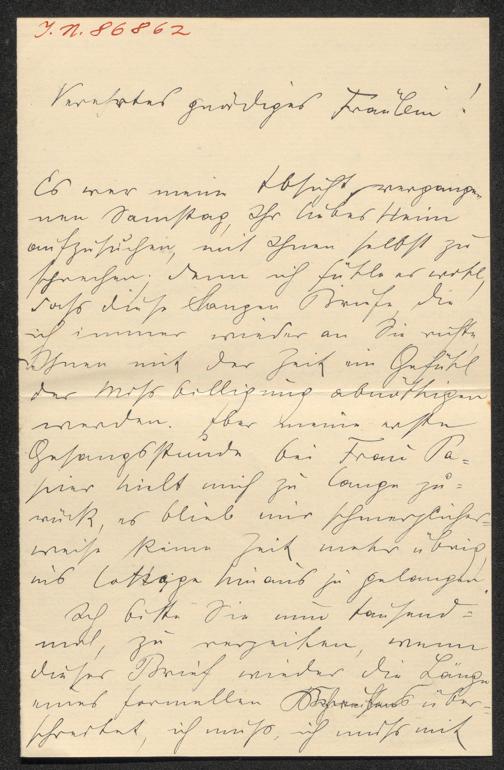 J. N. 86862
Verehrtes gnädiges Fräulein!
Es war meine Absicht, vergange-
nen Samstag, Ihr liebes Heim
aufzusuchen, mit Ihnen selbst zu
sprechen; denn ich fühle es wohl,
dass diese langen Briefe, die
ich immer wieder an Sie richte
Ihnen mit der Zeit ein Gefühl
der Missbilligung abnöthigen
werden. Aber meine erste
Gesangsstunde bei Frau Pa-
pier hielt mich zu lange zu-
rück, es blieb mir schmerzlicher-
weise keine Zeit mehr übrig
ins Cottage hinaus zu gelangen.
Ich bitte Sie nun tausend-
mal, zu verzeihen, wenn
dieser Brief wieder die Länge
eines formellen Schreibens über-
schreitet, ich muss, ich muss mit